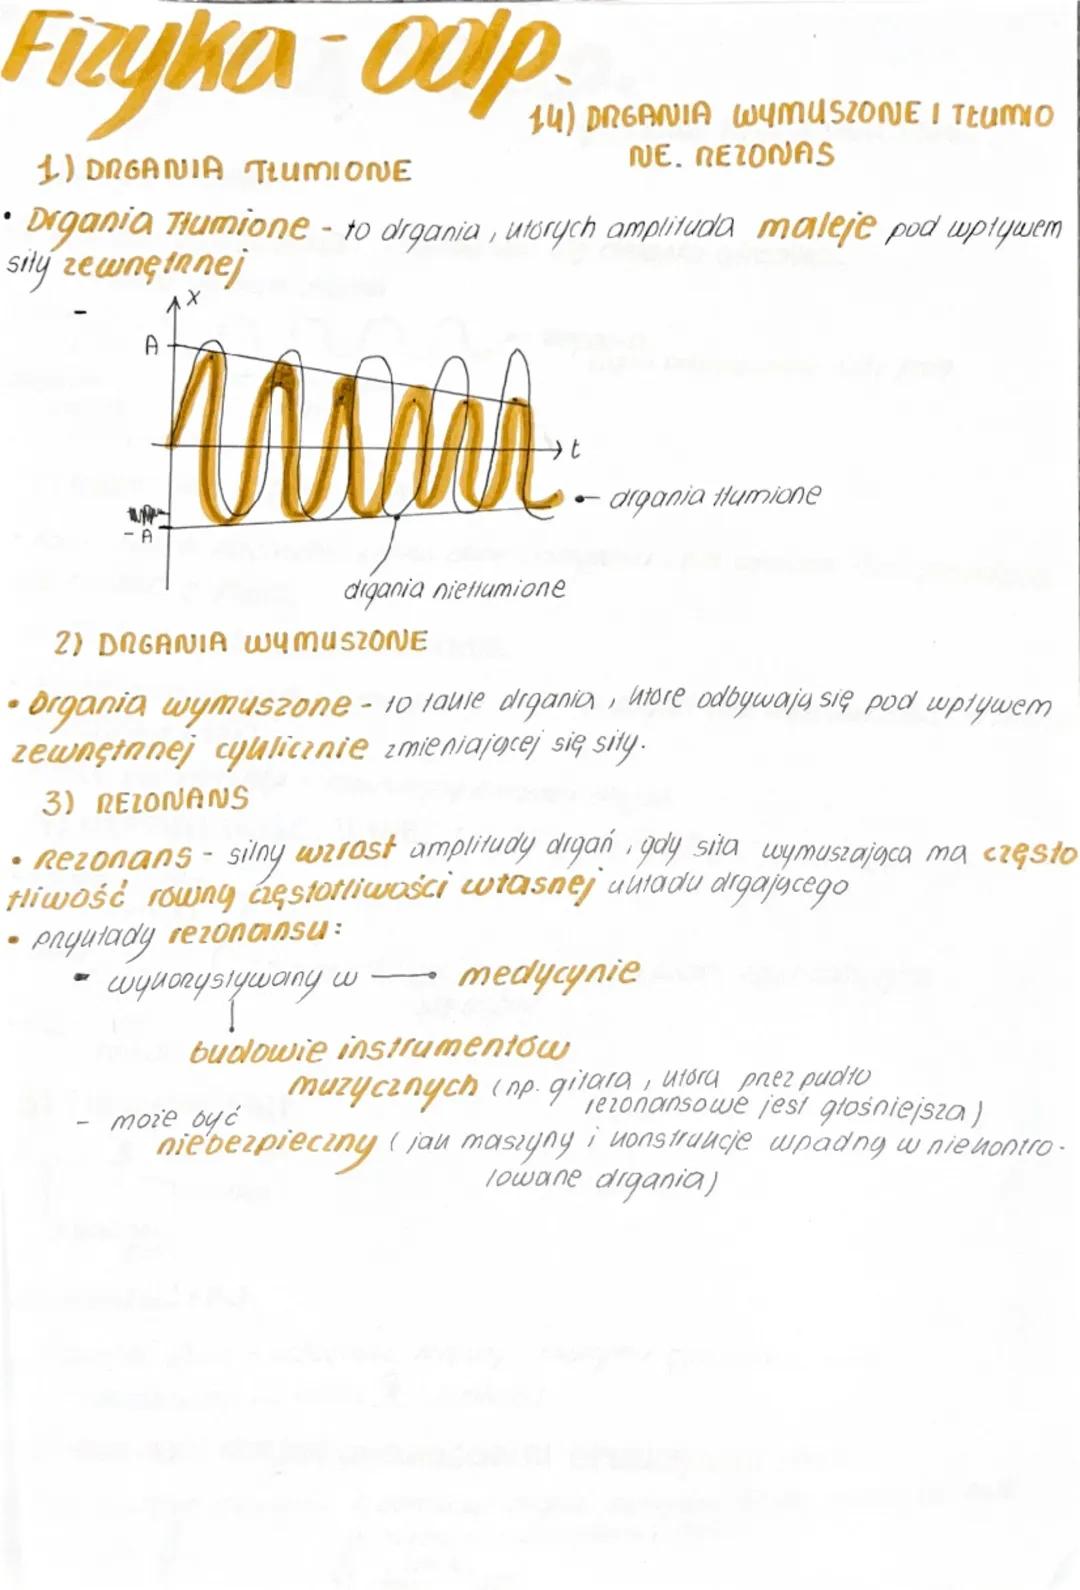 Fizyka - odp.
14) DRGANIA WYMUSZONE I TŁUMIO
NE. REZONAS
1) DRGANIA TŁUMIONE
• Drgania Tłumione - to drgania, których amplituda maleje pod wpływem
siły zewnętrznej
- x
A
t
- A
drgania tłumione
drgania nietłumione
2) DRGANIA WYMUSZONE
• Drgania wymuszone - to takie drgania, które odbywają się pod wpływem
zewnętrznej cyklicznie zmieniającej się siły.
3) REZONANS
• Rezonans - silny wzrost amplitudy drgań, gdy siła wymuszająca ma często
tliwość równą częstotliwości własnej układu drgającego
• przykłady rezonansu:
- wykorzystywany w → medycynie
budowie instrumentów
muzycznych (np. gitara, która przez pudło
rezonansowe jest głośniejsza)
- może być
niebezpieczny (jak maszyny i konstrukcje wpadną w niekontro-
lowane drgania)